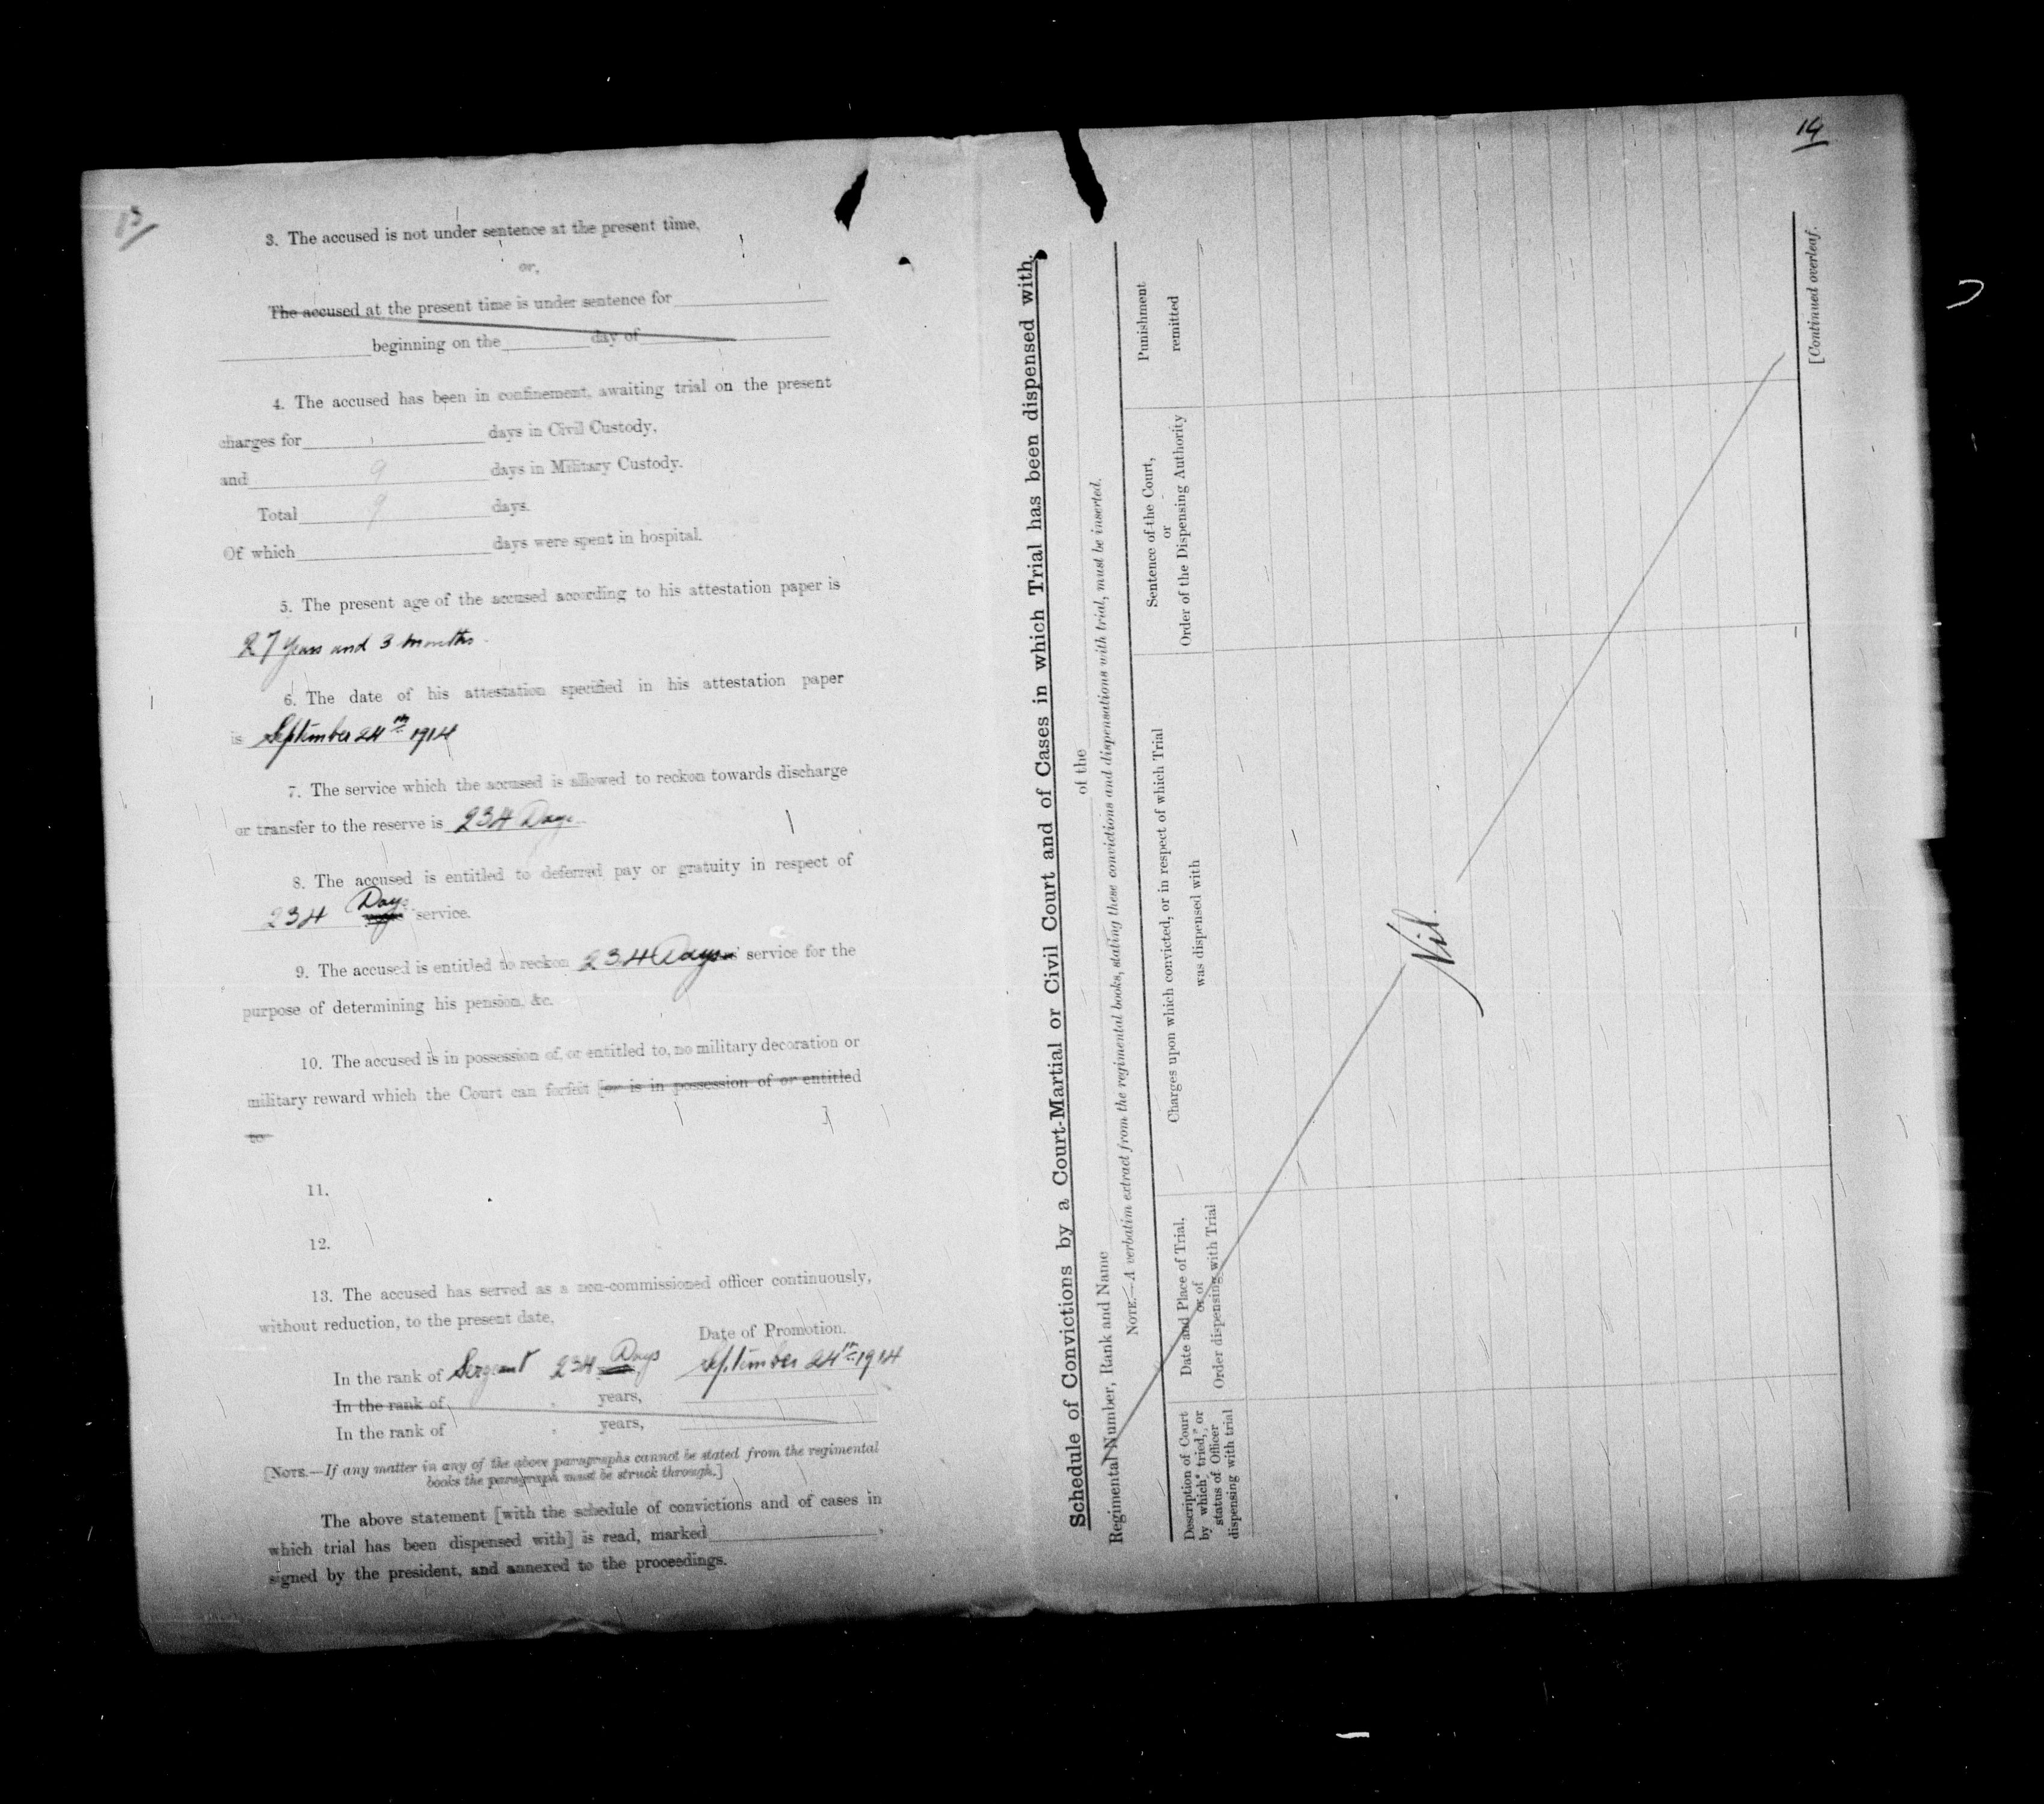 13
3. The accused is not under sentence at the present time,
or,
The accused at the present time is under sentence for
beginning on the day of
4. The accused has been in confinement, awaiting trial on the present
charges for days in Civil Custody,
and 9 days in Military Custody.
Total 9 days.
Of which days were spent in hospital.
5. The present age of the accused according to his attestation paper is
27 years and 3 months
6. The date of his attestation specified in his attestation paper
is September 24th 1914
7. The service which the accused is allowed to reckon towards discharge
or transfer to the reserve is 234 Days
8. The accused is entitled to deferred pay or gratuity in respect of
234 Days service.
9. The accused is entitled to reckon 234 Days service for the
purpose of determining his pension, &c.
10. The accused is in possession of, or entitled to, no military decoration or
military reward which the Court can forfeit [or is in possession of or entitled
to ]
11.
12.
13. The accused has served as a non-commissioned officer continuously,
without reduction, to the present date,
Date of Promotion.
In the rank of Sergeant 234 Days September 24th 1914
In the rank of , years,
In the rank of , years,
[NOTE.—If any matter in any of the above paragraphs cannot be stated from the regimental
books the paragraph must be struck through.]
The above statement [with the schedule of convictions and of cases in
which trial has been dispensed with] is read, marked ,
signed by the president, and annexed to the proceedings.
14
Schedule of Convictions by a Court-Martial or Civil Court and of Cases in which Trial has been dispensed with.
Regimental Number, Rank and Name of the
NOTE.—A verbatim extract from the regimental books, stating these convictions and dispensations with trial, must be inserted.
Description of Court
by which tried, or
status of Officer
dispensing with trial
Date and Place of Trial,
or of
Order dispensing with Trial
Charges upon which convicted, or in respect of which Trial
was dispensed with
Sentence of the Court,
or
Order of the Dispensing Authority
Punishment
remitted
Nil.
[Continued overleaf.